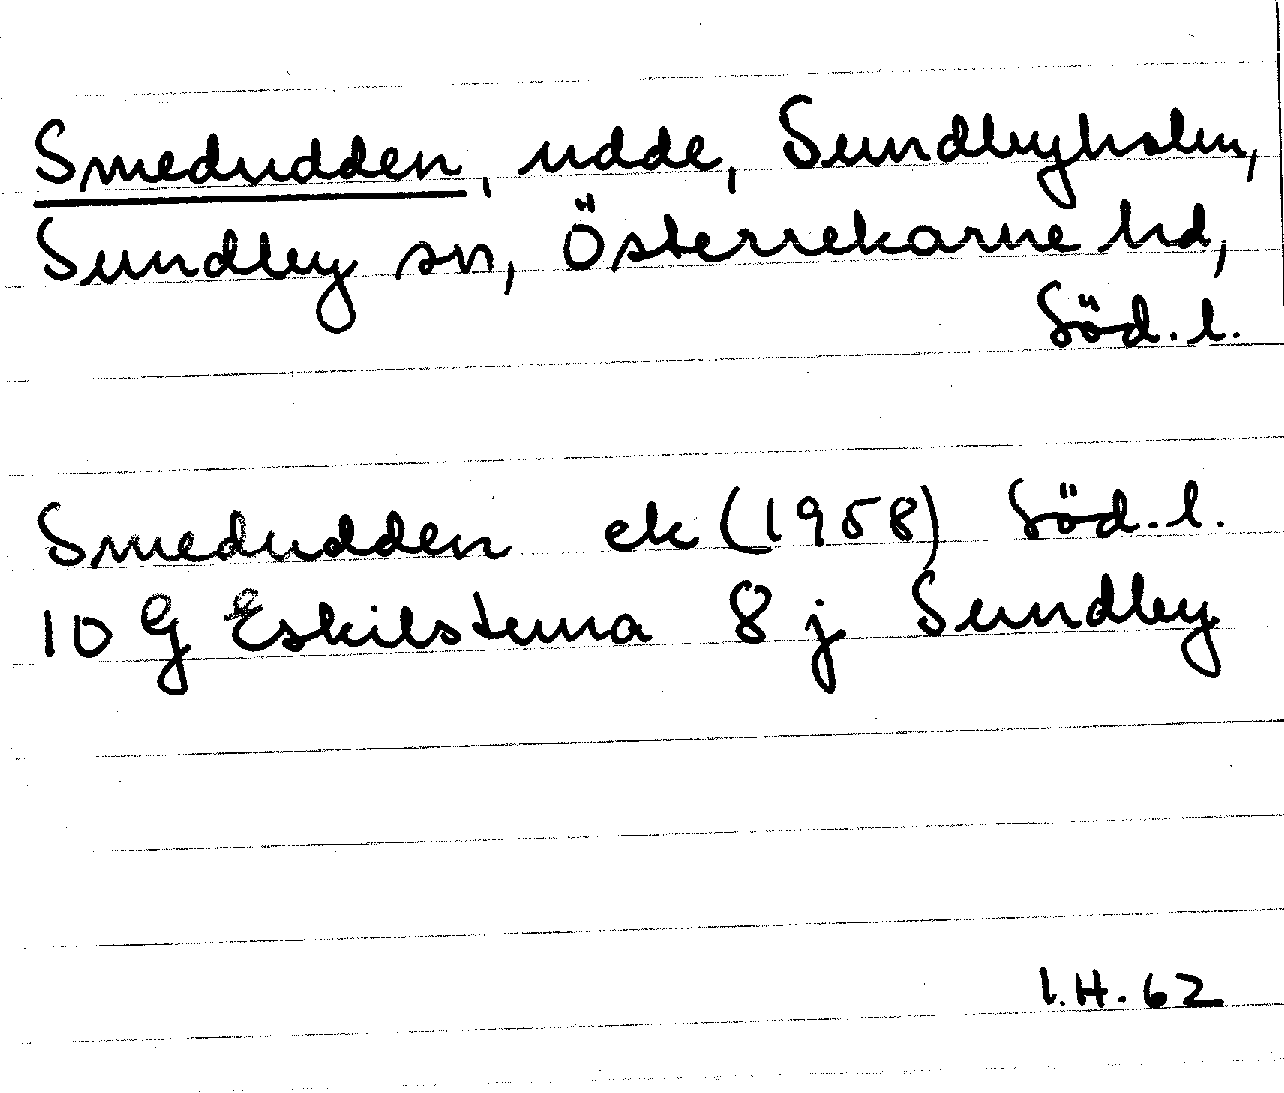 Smedudden, udde, Sundbyholm,
Sundby sn, Österrekarne hd,
Söd. l.
Smedudden ek (1958) Söd. l.
10 G Eskilstuna 8 j Sundby
I.H. 62